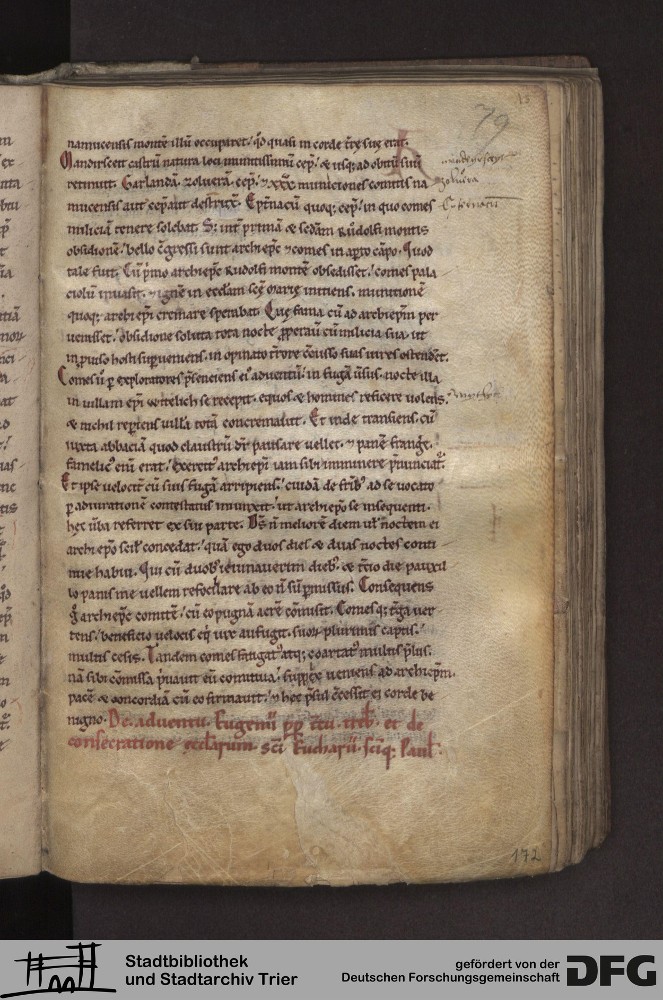 15
79
namucensis montē illū occuparet, qd quasi in corde t̄re sue erat.
Mandirsceit castrū natura loci munitissimū cep̄, & usq; ad obitū suū
retinuit. Garlandā, & oluerā cep̄, & xxx munitiones comitis na
mucensis aut cepit aut destruxit. Ep̄tnacū quoq; cep̄, in quo comes
miliciā tenere solebat. S; int̄ primā & sedam Rudolfi montis
obsidionē, bello c̄gressi sunt archiep̄c & comes in ap̄to cāpo. Quod
tale fuit. Cū p̄mo archiep̄c Rudolfi montē obsedisset, comes pala
ciolū inuasit, & ignē in ecclam scē marie mittens, munitionē
quoq; archiep̄i cremare sperabat. Que fama cū ad archiep̄m per
uenisset, obsidione soluta tota nocte properauit cū milicia sua, ut
inprouiso hosti supueniens, in opinato t̄rore c̄cusso suas uires ostenderet.
Comes ū p exploratores p̄senciens ei aduentū, in fugā uersus, nocte illa
in uillam ep̄i witelich se recepit, equos & homines reficere uolens,
& nichil repiens uillā totā concremauit. Et inde transiens, cū
iuxta abbaciā quod claustrū dr̄ pausare uellet, & panē frangeret,
famelic enī erat, exercit archiep̄i iam sibi imminere p̄nunciat.
Et ipse uelocit cū suis fugā arripiens, cuidā de frib ad se uocato
p adiurationē contestatus iniunxit, ut archiep̄o se insequenti
hec uba referret ex sui parte. Ds n meliorē diem ul noctem ei
archiep̄o scil concedat, quā ego duos dies & duas noctes conti
nue habui. Qui cū duob ieiunauerim dieb, & tcio die pauxil
lo panis me uellem refocilare, ab eo n sū p̄missus. Consequens
g archiep̄c comitē, cū eo pugnā acrē cōmisit. Comesq; t̄ga uer
tens, beneficio uelocis eq uix aufugit, suor plurimis captis,
multis cesis. Tandem comes fatigat atq; coartat multis p̄liis,
nā sibi cōmissa p̄uauit eū comitiua, supplex ueniens ad archiep̄m,
pacē & concordiā cū eo firmauit, & hec p̄sul c̄cessit ei corde be
nigno. De aduentu Eugenii pp ctii treb. et de
consecratione ecclarum sci Eucharii, sciq; Paul.
172
Stadtbibliothek
und Stadtarchiv Trier
gefördert von der
Deutschen Forschungsgemeinschaft
DFG